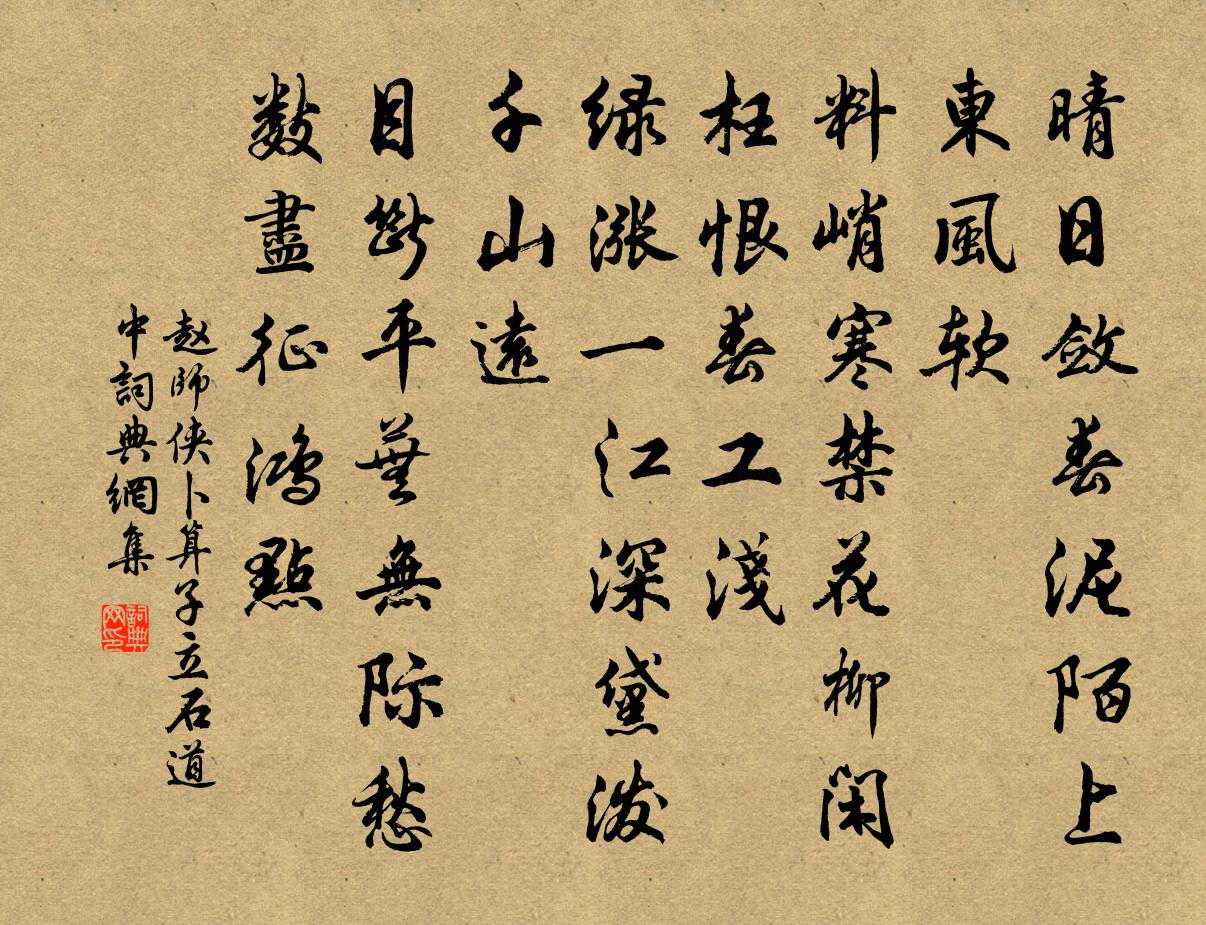 晴日斂春泥陌上
東風軟
料峭寒禁花柳閑
枉恨春工淺
緑漲一江深黛潑
千山遠
目斷平蕪無際愁
數盡征鴻點
赵師侠卜算子立石道
中詞典網集
詞典
网印